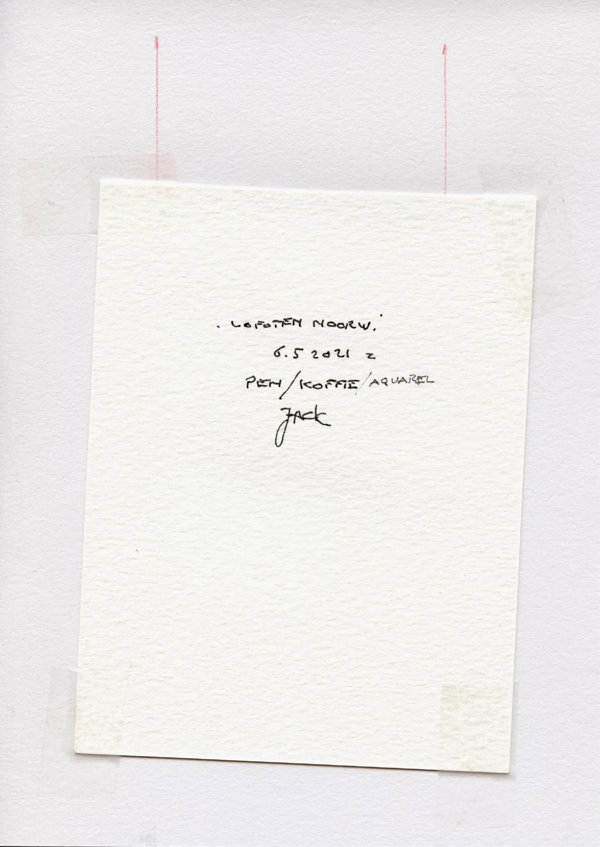 . LOFOTEN NOORW.'
6.5 2021 z
PEN/KOFFIE/AQUAREL
Jack